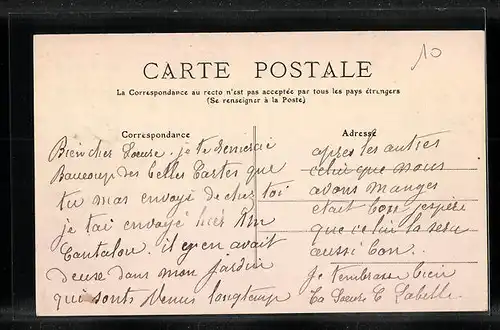 10
CARTE POSTALE
La Correspondance au recto n'est pas acceptée par tous les pays étrangers
(Se renseigner à la Poste)
Correspondance
Bien cher Soeure. je te remerai
Beaucoup des Belles Cartes que
tu mas envoyé de chez toi
je tai envoyé hier un
Cantalou. il y en avait
deuse dans mon jardin
qui sonts Venus longtemp
Adresse
apres les autres
celui que nous
avons manges
etait Bon jespere
que celui la sera
aussi Bon.
je tembrasse bien
ta Soeure C Labelle